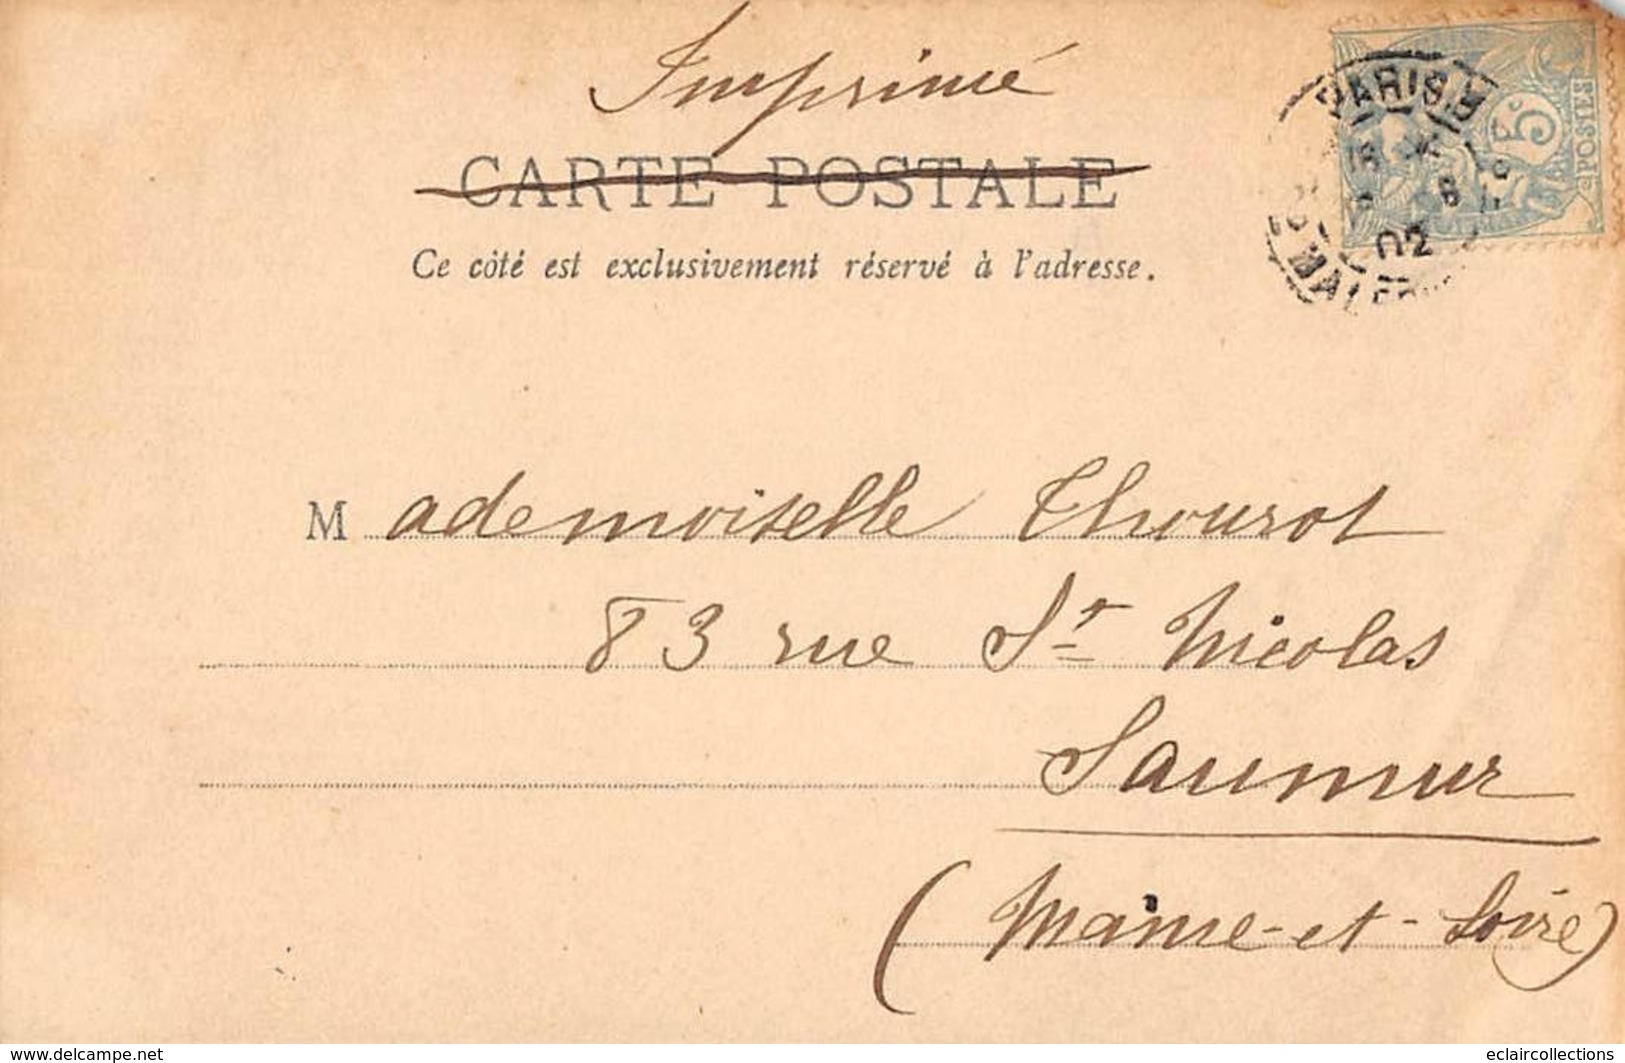 Imprimé
CARTE POSTALE
Ce côté est exclusivement réservé à l'adresse.
PARIS
5c
POSTES
8
02
Mademoiselle Thourot
83 rue St Nicolas
Saumur
(Maine-et-Loire)
www.delcampe.net
eclaircollections